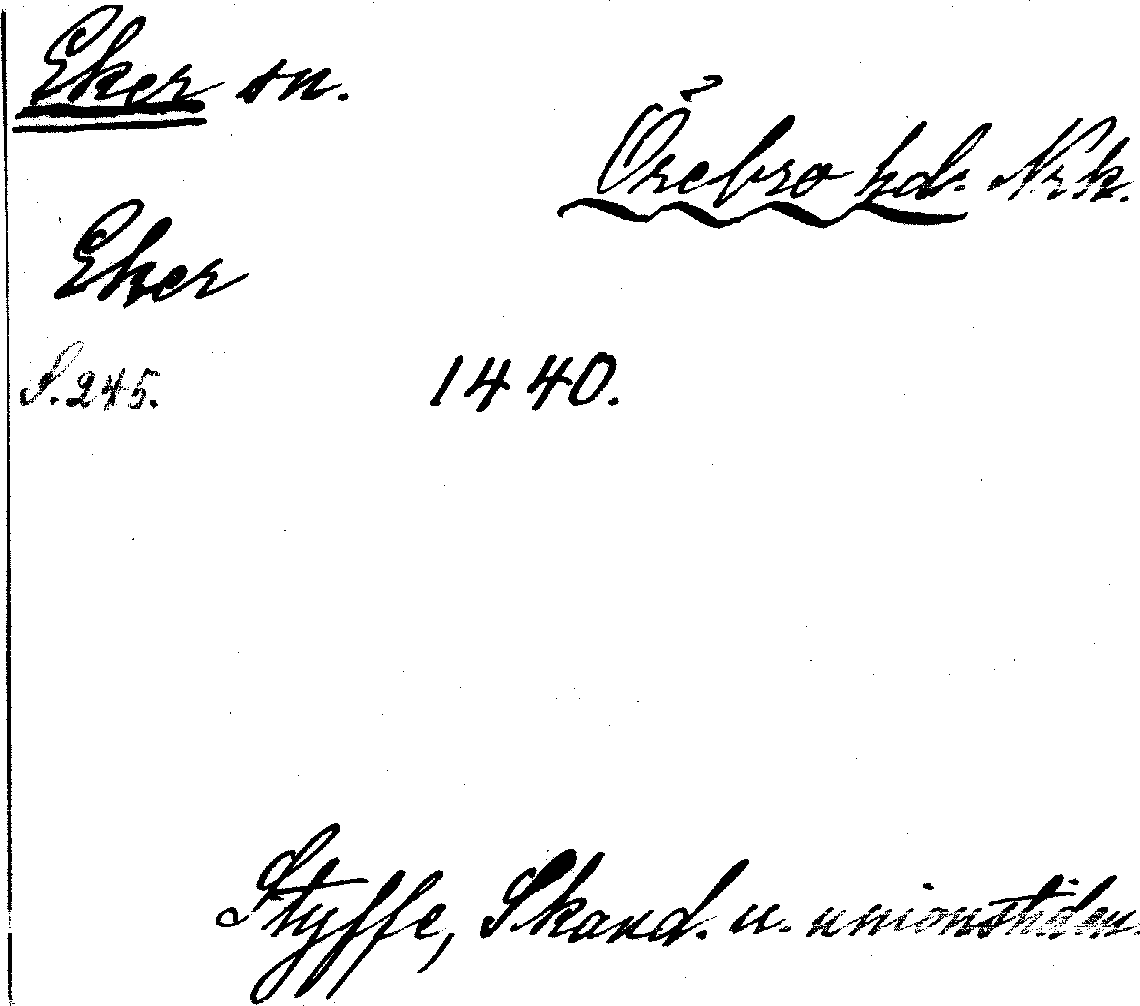 Eker sn.
Örebro hd. Nrk.
Eker
S. 245.
1440.
Styffe, Skand. u. unionstiden.